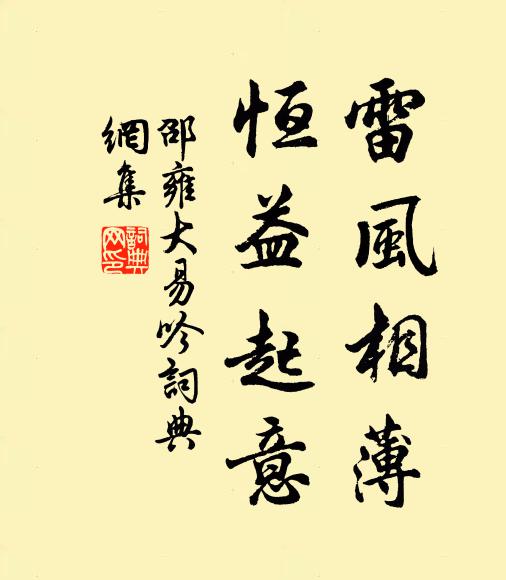 雷風相薄
恒益起意
邵雍大易吟詞典
網集
詞典网印